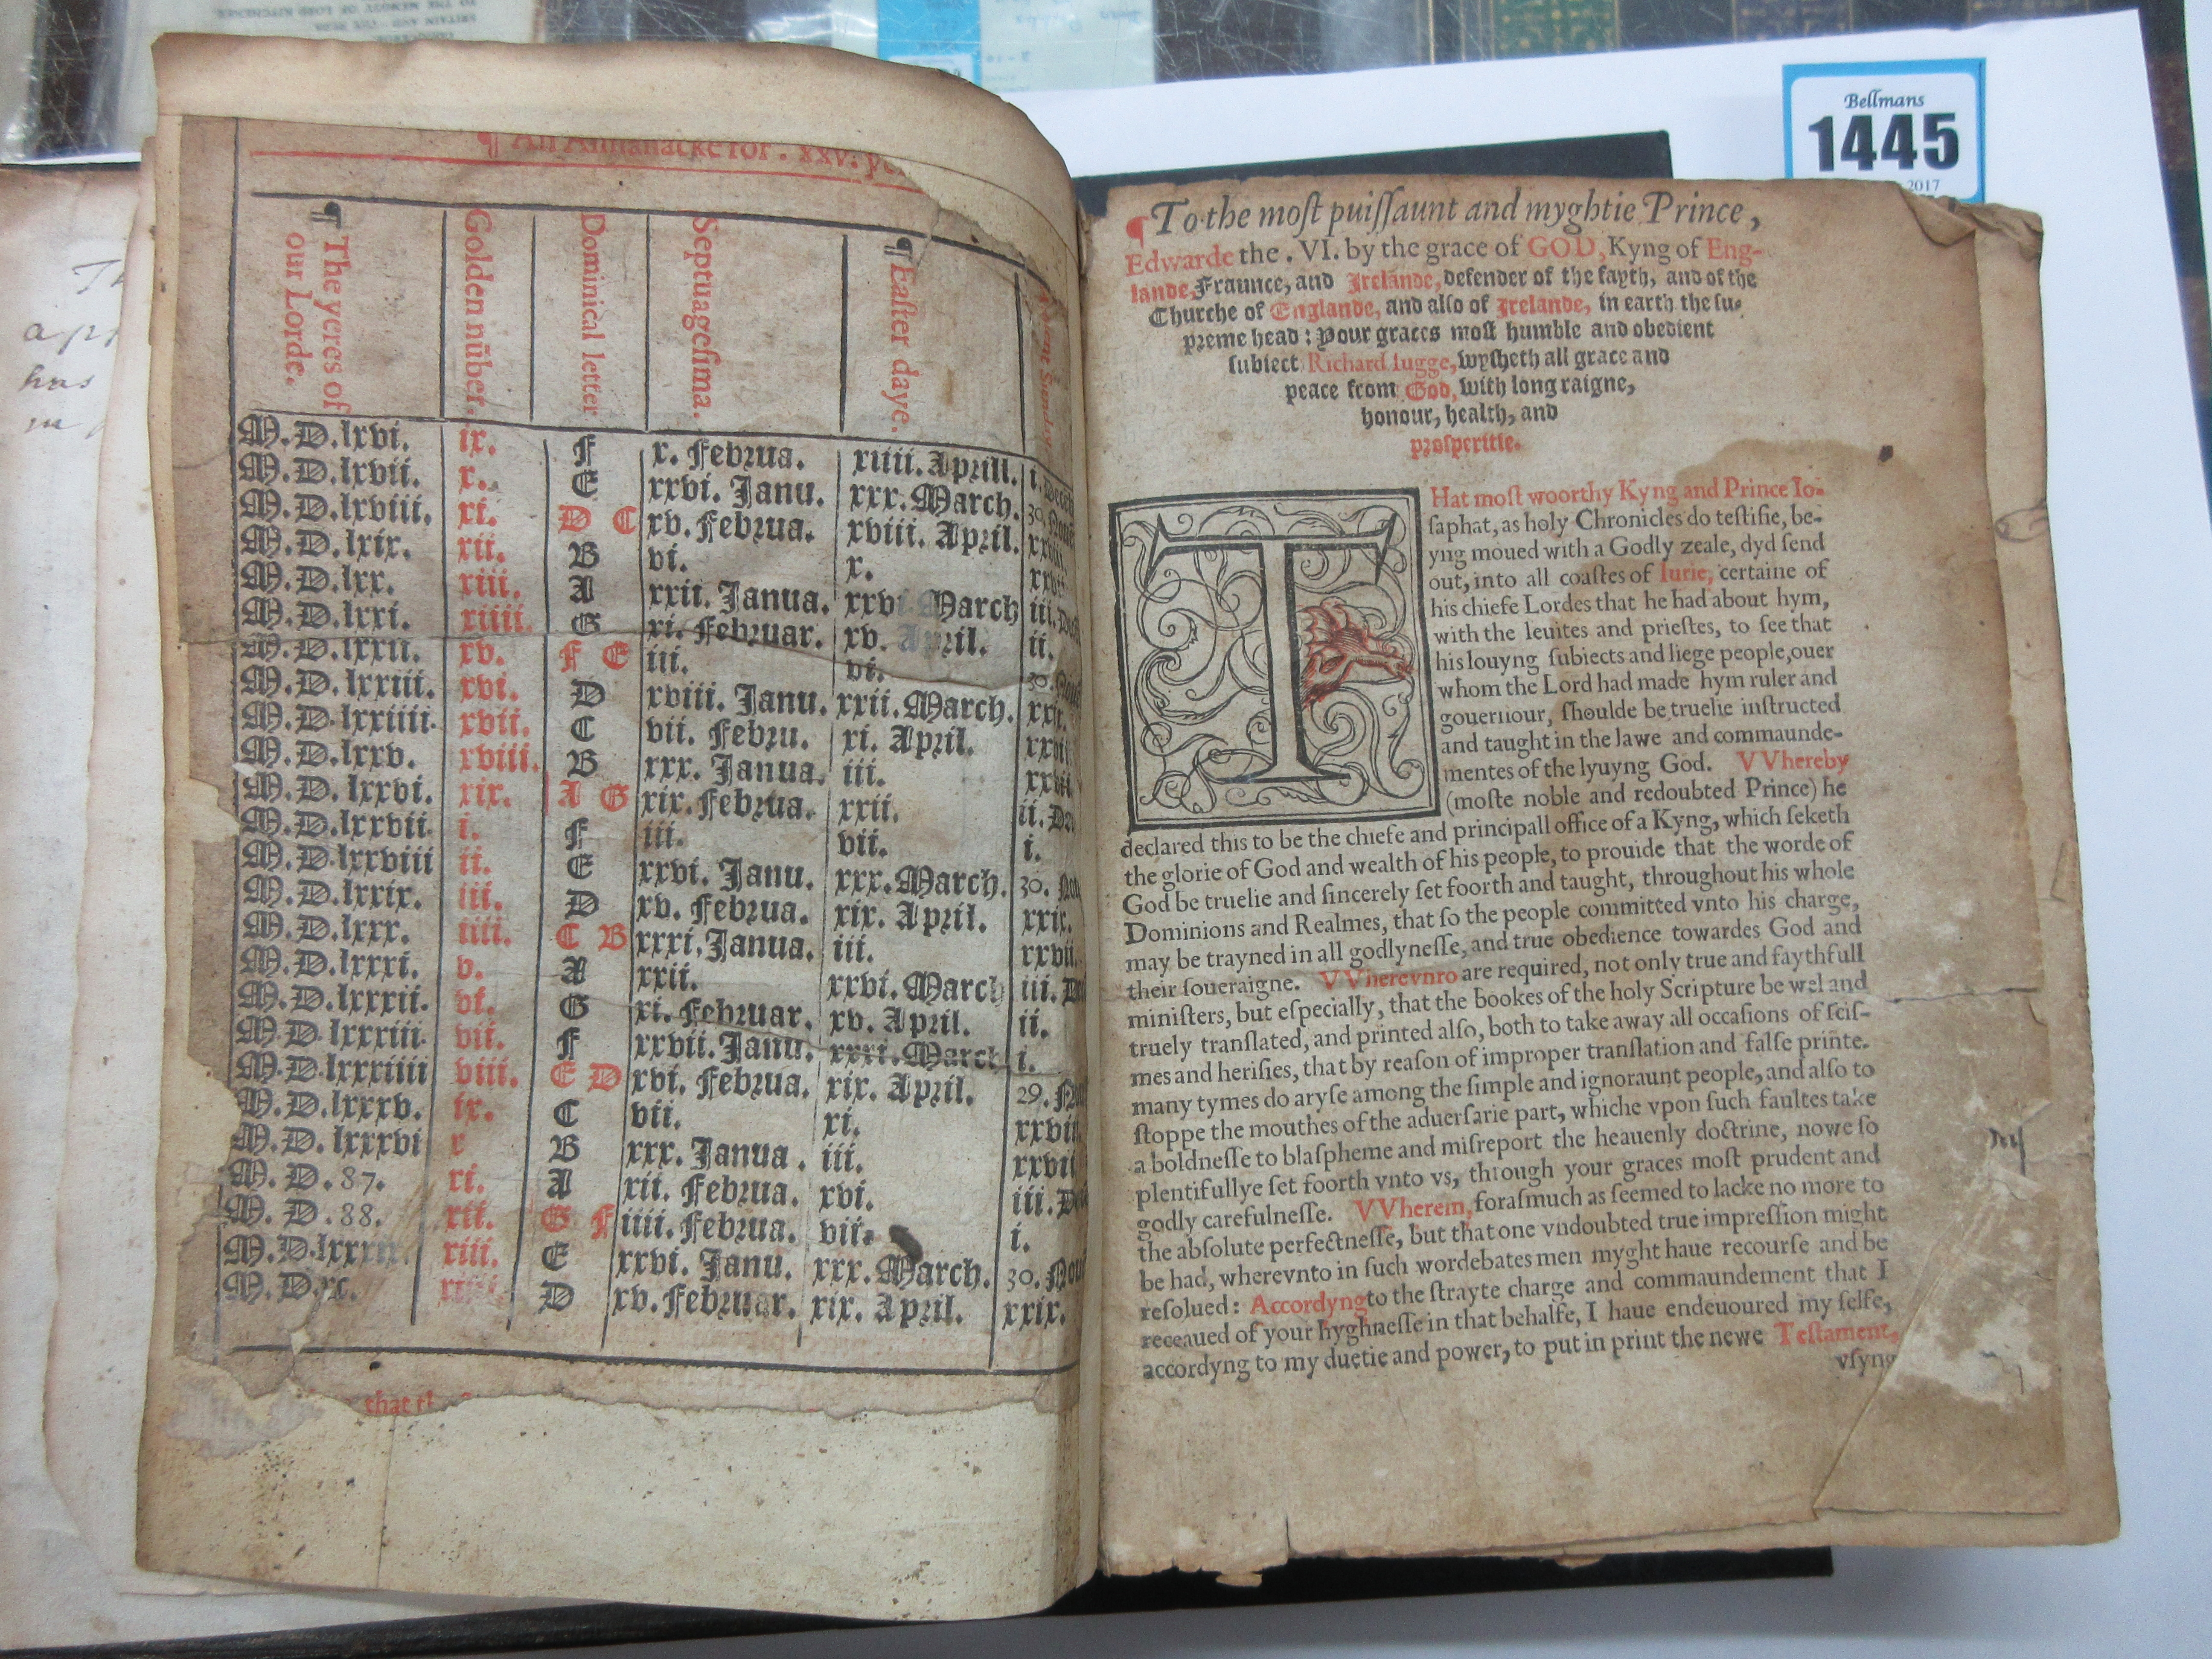 Bellmans
1445
2017
¶ An Almanacke for . xxv. ye
¶ The yeres of our Lorde.
Golden nũber.
Dominical letter
Septuagesima.
¶ Easter daye.
M.D.lxvi. ix. F x. Februa. xiiii. Aprill. i.
M.D.lxvii. x. E xxvi. Janu. xxx. March. 30.
M.D.lxviii. xi. D C xv. Februa. xviii. April.
M.D.lxix. xii. B vi. x.
M.D.lxx. xiii. A xxii. Janua. xxvi March iii.
M.D.lxxi. xiiii. G xi. Februar. xv. April. ii.
M.D.lxxii. xv. F E iii. vi. 30.
M.D.lxxiii. xvi. D xviii. Janu. xxii. March.
M.D.lxxiiii. xvii. C vii. Febru. xi. April.
M.D.lxxv. xviii. B xxx. Janua. iii.
M.D.lxxvi. xix. A G xix. Februa. xxii. ii. De
M.D.lxxvii. i. F iii. vii. i.
M.D.lxxviii ii. E xxvi. Janu. xxx. March. 30. No
M.D.lxxix. iii. D xv. Februa. xix. April. xxix.
M.D.lxxx. iiii. C B xxxi. Janua. iii. xxvii.
M.D.lxxxi. v. A xxii. xxvi. March iii. D
M.D.lxxxii. vi. G xi. Februar. xv. April. ii.
M.D.lxxxiii. vii. F xxvii. Janu. xxxi. March i.
M.D.lxxxiiii viii. E D xvi. Februa. xix. April. 29. No
M.D.lxxxv. ix. C vii. xi. xxvii
M.D.lxxxvi x B xxx. Janua. iii. xxvii
M.D.87. xi. A xii. Februa. xvi. iii. De
M.D.88. xii. G F iiii. Februa. vii. i.
xiii. E xxvi. Janu. xxx. March. 30. Nou
M.D.xc. D xv. Februar. xix. April. xxix.
that
¶ To the moſt puiſſaunt and myghtie Prince,
Edwarde the . VI. by the grace of GOD, Kyng of Eng-
lande, Fraunce, and Irelande, defender of the fayth, and of the
Churche of Englande, and alſo of Irelande, in earth the ſu-
preme head: Your graces moſt humble and obedient
ſubiect Richard Iugge, wyſheth all grace and
peace from God, with long raigne,
honour, health, and
proſperitie.
THat moſt woorthy Kyng and Prince Io-
ſaphat, as holy Chronicles do teſtifie, be-
yng moued with a Godly zeale, dyd ſend
out, into all coaſtes of Iurie, certaine of
his chiefe Lordes that he had about hym,
with the leuites and prieſtes, to ſee that
his louyng ſubiects and liege people, ouer
whom the Lord had made hym ruler and
gouernour, ſhoulde be truelie inſtructed
and taught in the lawe and commaunde-
mentes of the lyuyng God. VVhereby
(moſte noble and redoubted Prince) he
declared this to be the chiefe and principall office of a Kyng, which ſeketh
the glorie of God and wealth of his people, to prouide that the worde of
God be truelie and ſincerely ſet foorth and taught, throughout his whole
Dominions and Realmes, that ſo the people committed vnto his charge,
may be trayned in all godlyneſſe, and true obedience towardes God and
their ſoueraigne. VVherevnro are required, not only true and faythfull
miniſters, but eſpecially, that the bookes of the holy Scripture be wel and
truely tranſlated, and printed alſo, both to take away all occaſions of ſciſ-
mes and heriſies, that by reaſon of improper tranſlation and falſe printe.
many tymes do aryſe among the ſimple and ignoraunt people, and alſo to
ſtoppe the mouthes of the aduerſarie part, whiche vpon ſuch faultes take
a boldneſſe to blaſpheme and miſreport the heauenly doctrine, nowe ſo
plentifullye ſet foorth vnto vs, through your graces moſt prudent and
godly carefulneſſe. VVherein, foraſmuch as ſeemed to lacke no more to
the abſolute perfectneſſe, but that one vndoubted true impreſſion might
be had, wherevnto in ſuch wordebates men myght haue recourſe and be
reſolued: Accordyng to the ſtrayte charge and commaundement that I
receaued of your hyghneſſe in that behalfe, I haue endeuoured my ſelfe,
accordyng to my duetie and power, to put in print the newe Teſtament,
vſyng